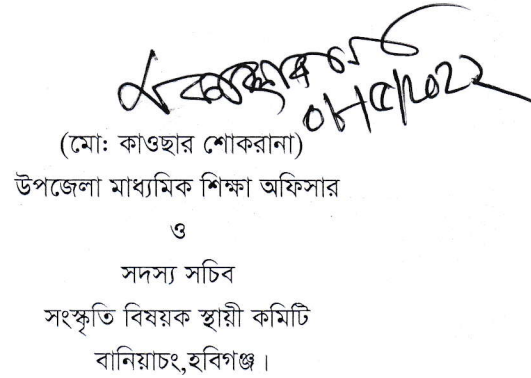 (মো: কাওছার শোকরানা)
উপজেলা মাধ্যমিক শিক্ষা অফিসার
ও
সদস্য সচিব
সংস্কৃতি বিষয়ক স্থায়ী কমিটি
বানিয়াচং,হবিগঞ্জ।